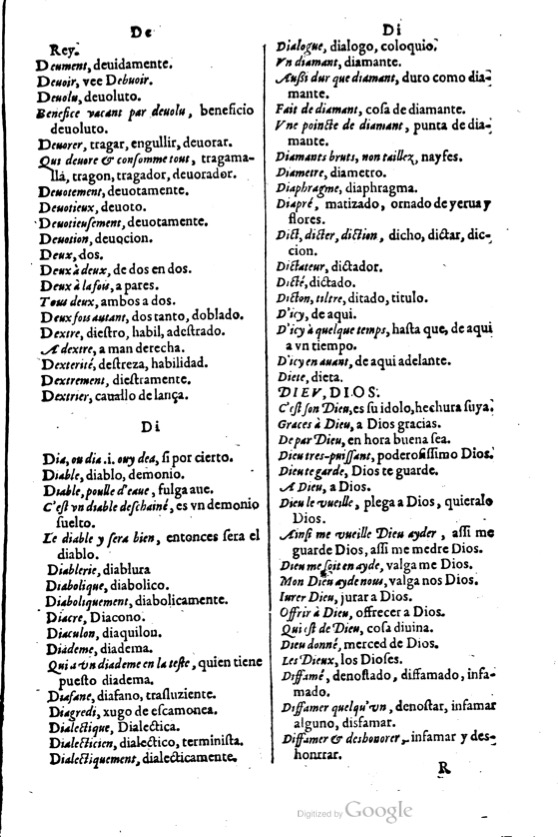 De
Rey.
Deument, deuidamente.
Deuoir, vee Debuoir.
Deuolu, deuoluto.
Benefice vacant par deuolu, beneficio
deuoluto.
Deuorer, tragar, engullir, deuorar.
Qui deuore & consomme tout, tragama-
lla, tragon, tragador, deuorador.
Deuotement, deuotamente.
Deuotieux, deuoto.
Deuotieusement, deuotamente.
Deuotion, deuocion.
Deux, dos.
Deux à deux, de dos en dos.
Deux à la fois, a pares.
Tous deux, ambos a dos.
Deux fois autant, dos tanto, doblado.
Dextre, diestro, habil, adestrado.
A dextre, a man derecha.
Dexterité, destreza, habilidad.
Dextrement, diestramente.
Dextrier, cauallo de lança.
Di
Dia, ou dia .i. ouy dea, si por cierto.
Diable, diablo, demonio.
Diable, poulle d'eaue, fulga aue.
C'est vn diable deschainé, es vn demonio
suelto.
Le diable y sera bien, entonces sera el
diablo.
Diablerie, diablura
Diabolique, diabolico.
Diaboliquement, diabolicamente.
Diacre, Diacono.
Diaculon, diaquilon.
Diademe, diadema.
Qui a vn diademe en la teste, quien tiene
puesto diadema.
Diafane, diafano, trasluziente.
Diagredi, xugo de escamonea.
Dialectique, Dialectica.
Dialecticien, dialectico, terminista.
Dialectiquement, dialecticamente.
Di
Dialogue, dialogo, coloquio.
Vn diamant, diamante.
Aussi dur que diamant, duro como dia-
mante.
Fait de diamant, cosa de diamante.
Vne poincte de diamant, punta de dia-
mante.
Diamants bruts, non taillez, nayfes.
Diametre, diametro.
Diaphragme, diaphragma.
Diapré, matizado, ornado de yerua y
flores.
Dict, dicter, diction, dicho, dictar, dic-
cion.
Dictateur, dictador.
Dicté, dictado.
Dicton, tiltre, ditado, titulo.
D'icy, de aqui.
D'icy à quelque temps, hasta que, de aqui
a vn tiempo.
D'icy en auant, de aqui adelante.
Diete, dieta.
DIEV, DIOS.
C'est son Dieu, es su idolo, hechura suya.
Graces à Dieu, a Dios gracias.
De par Dieu, en hora buena sea.
Dieu tres-puissant, poderosissimo Dios.
Dieu te garde, Dios te guarde.
A Dieu, a Dios.
Dieu le vueille, plega a Dios, quieralo
Dios.
Ainsi me vueille Dieu ayder, assi me
guarde Dios, assi me medre Dios.
Dieu me soit en ayde, valga me Dios.
Mon Dieu ayde nous, valga nos Dios.
Iurer Dieu, jurar a Dios.
Offrir à Dieu, offrecer a Dios.
Qui est de Dieu, cosa diuina.
Dieu donné, merced de Dios.
Les Dieux, los Dioses.
Diffamé, denostado, diffamado, infa-
mado.
Diffamer quelqu'vn, denostar, infamar
alguno, disfamar.
Diffamer & deshonorer, infamar y des-
honrrar.
R
Digitized by Google